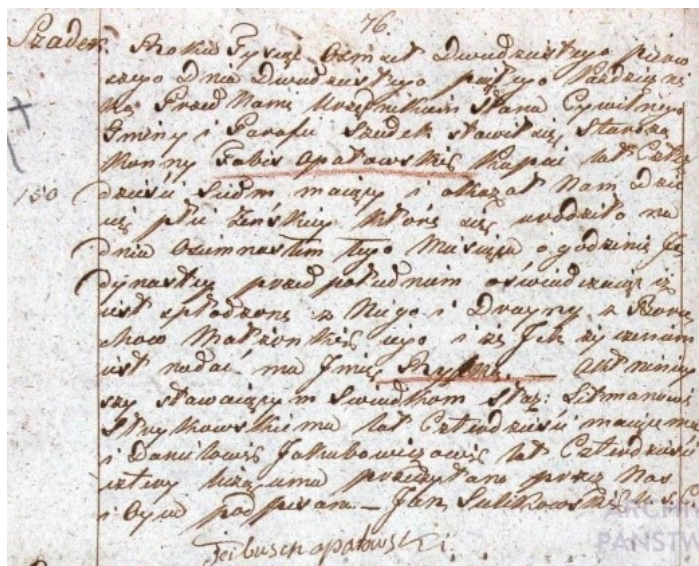 76.
Szadek. Roku Tysiąc Osmset Dwudziestego pierw
szego Dnia Dwudziestego piątego Październi
ka Przed Nami Urzędnikiem Stanu Cywilnego
Gminy i Parafii Szadek stawił się Staroza
konny Fabis Opatowski Kupiec lat Czter
150
dzieści Siedm maiący i okazał Nam Dzie
cię płci Żeńskiey które się urodziło na
dniu Osimnastem tego Miesiąca o godzinie Je
dynastey przed południem oświadczaiąc iż
iest spłodzone z Niego i Drayny z Boru
chow Małżonki iego i że Jch życzeniem
iest nadać ma Jmię — Akt niniey
szy stawaiącym Swiadkom Staz: Litmanowi
Strykowskiemu lat Czterdzieści maiącemu
i Danielowi Jakubowiczowi lat Czterdzieści
cztery liczącemu przeczytano przez Nas
i Oyca podpisan. — Jan Sulikowski U. S. C.
Feibusch opatowski
ARCHI
PAŃSTW